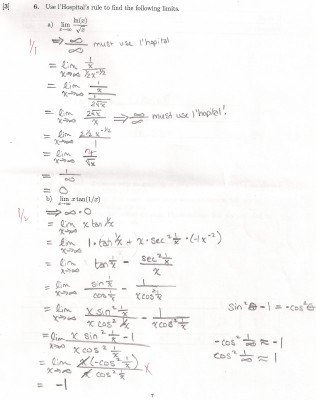 [3]
6. Use l'Hospital's rule to find the following limits.
a) lim x→∞ ln(x)/√x
1/1
⇒ ∞/∞ must use l'hopital
= lim x→∞ (1/x)/(1/2 x^-1/2)
= lim x→∞ (1/x)/(1/2√x)
= lim x→∞ 2√x/x ⇒ ∞/∞ must use l'hopital!
= lim x→∞ (2·1/2 x^-1/2)/1
= lim x→∞ /√x
= 1/∞
= 0
b) lim x→∞ x tan(1/x)
⇒ ∞·0
= lim x→∞ x tan 1/x
= lim x→∞ 1·tan 1/x + x·sec² 1/x·(-1x^-2)
= lim x→∞ tan 1/x - (sec² 1/x)/x
= lim x→∞ (sin 1/x)/(cos 1/x) - 1/(x cos² 1/x)
= lim x→∞ (x sin² 1/x)/(x cos² 1/x) - 1/(x cos² 1/x)
sin²θ - 1 = -cos²θ
= lim x→∞ (x sin² 1/x - 1)/(x cos² 1/x)
-cos² 1/∞ ≈ -1
= lim x→∞ x(-cos² 1/x)/(x cos² 1/x) x
cos² 1/∞ ≈ 1
= -1
7